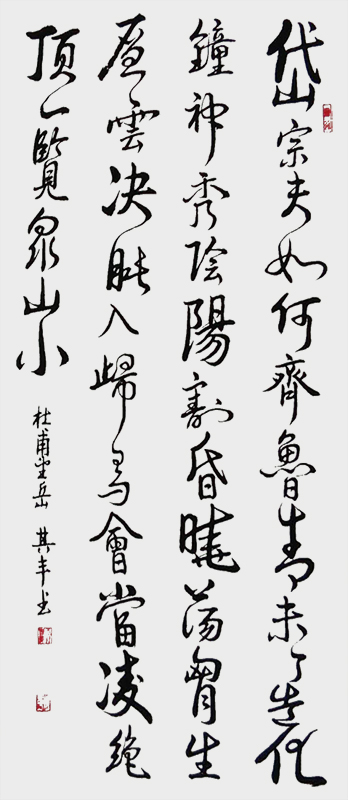 岱宗夫如何齊魯青未了造化
鐘神秀陰陽割昏曉蕩胷生
層雲决眥入歸鳥會當凌绝
頂一覽众山小
杜甫望岳 其丰书